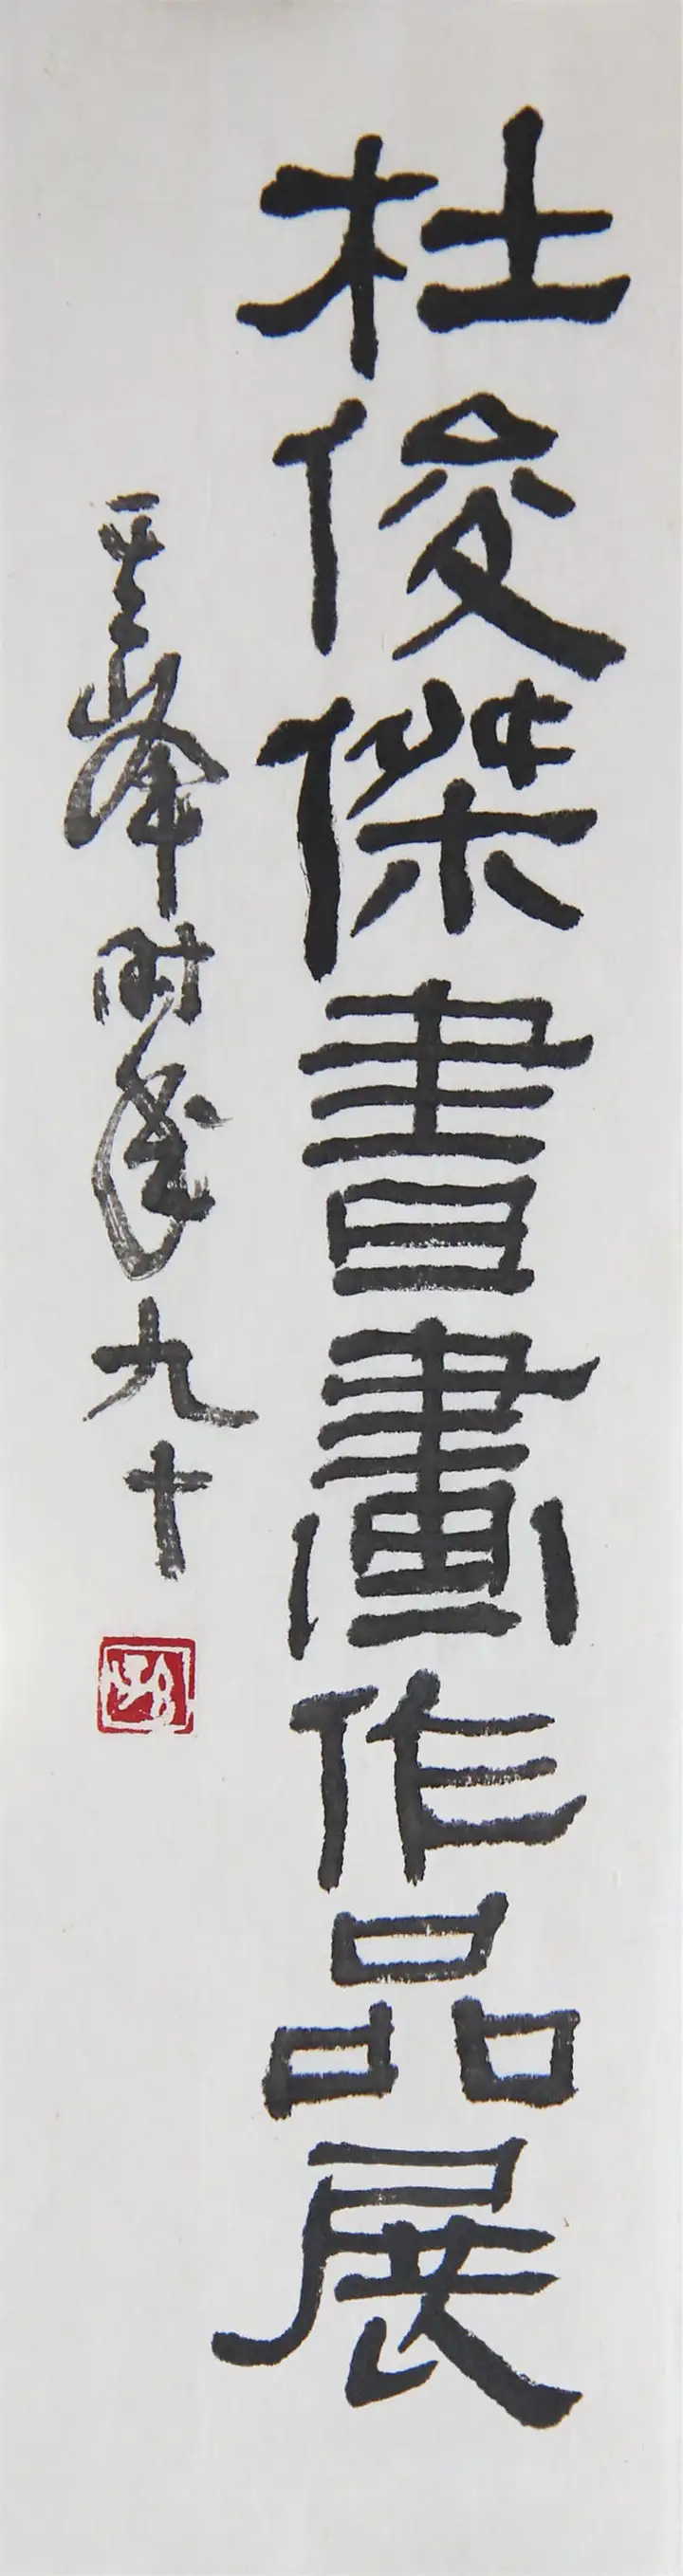 杜俊傑書畫作品展
雲峰时年九十